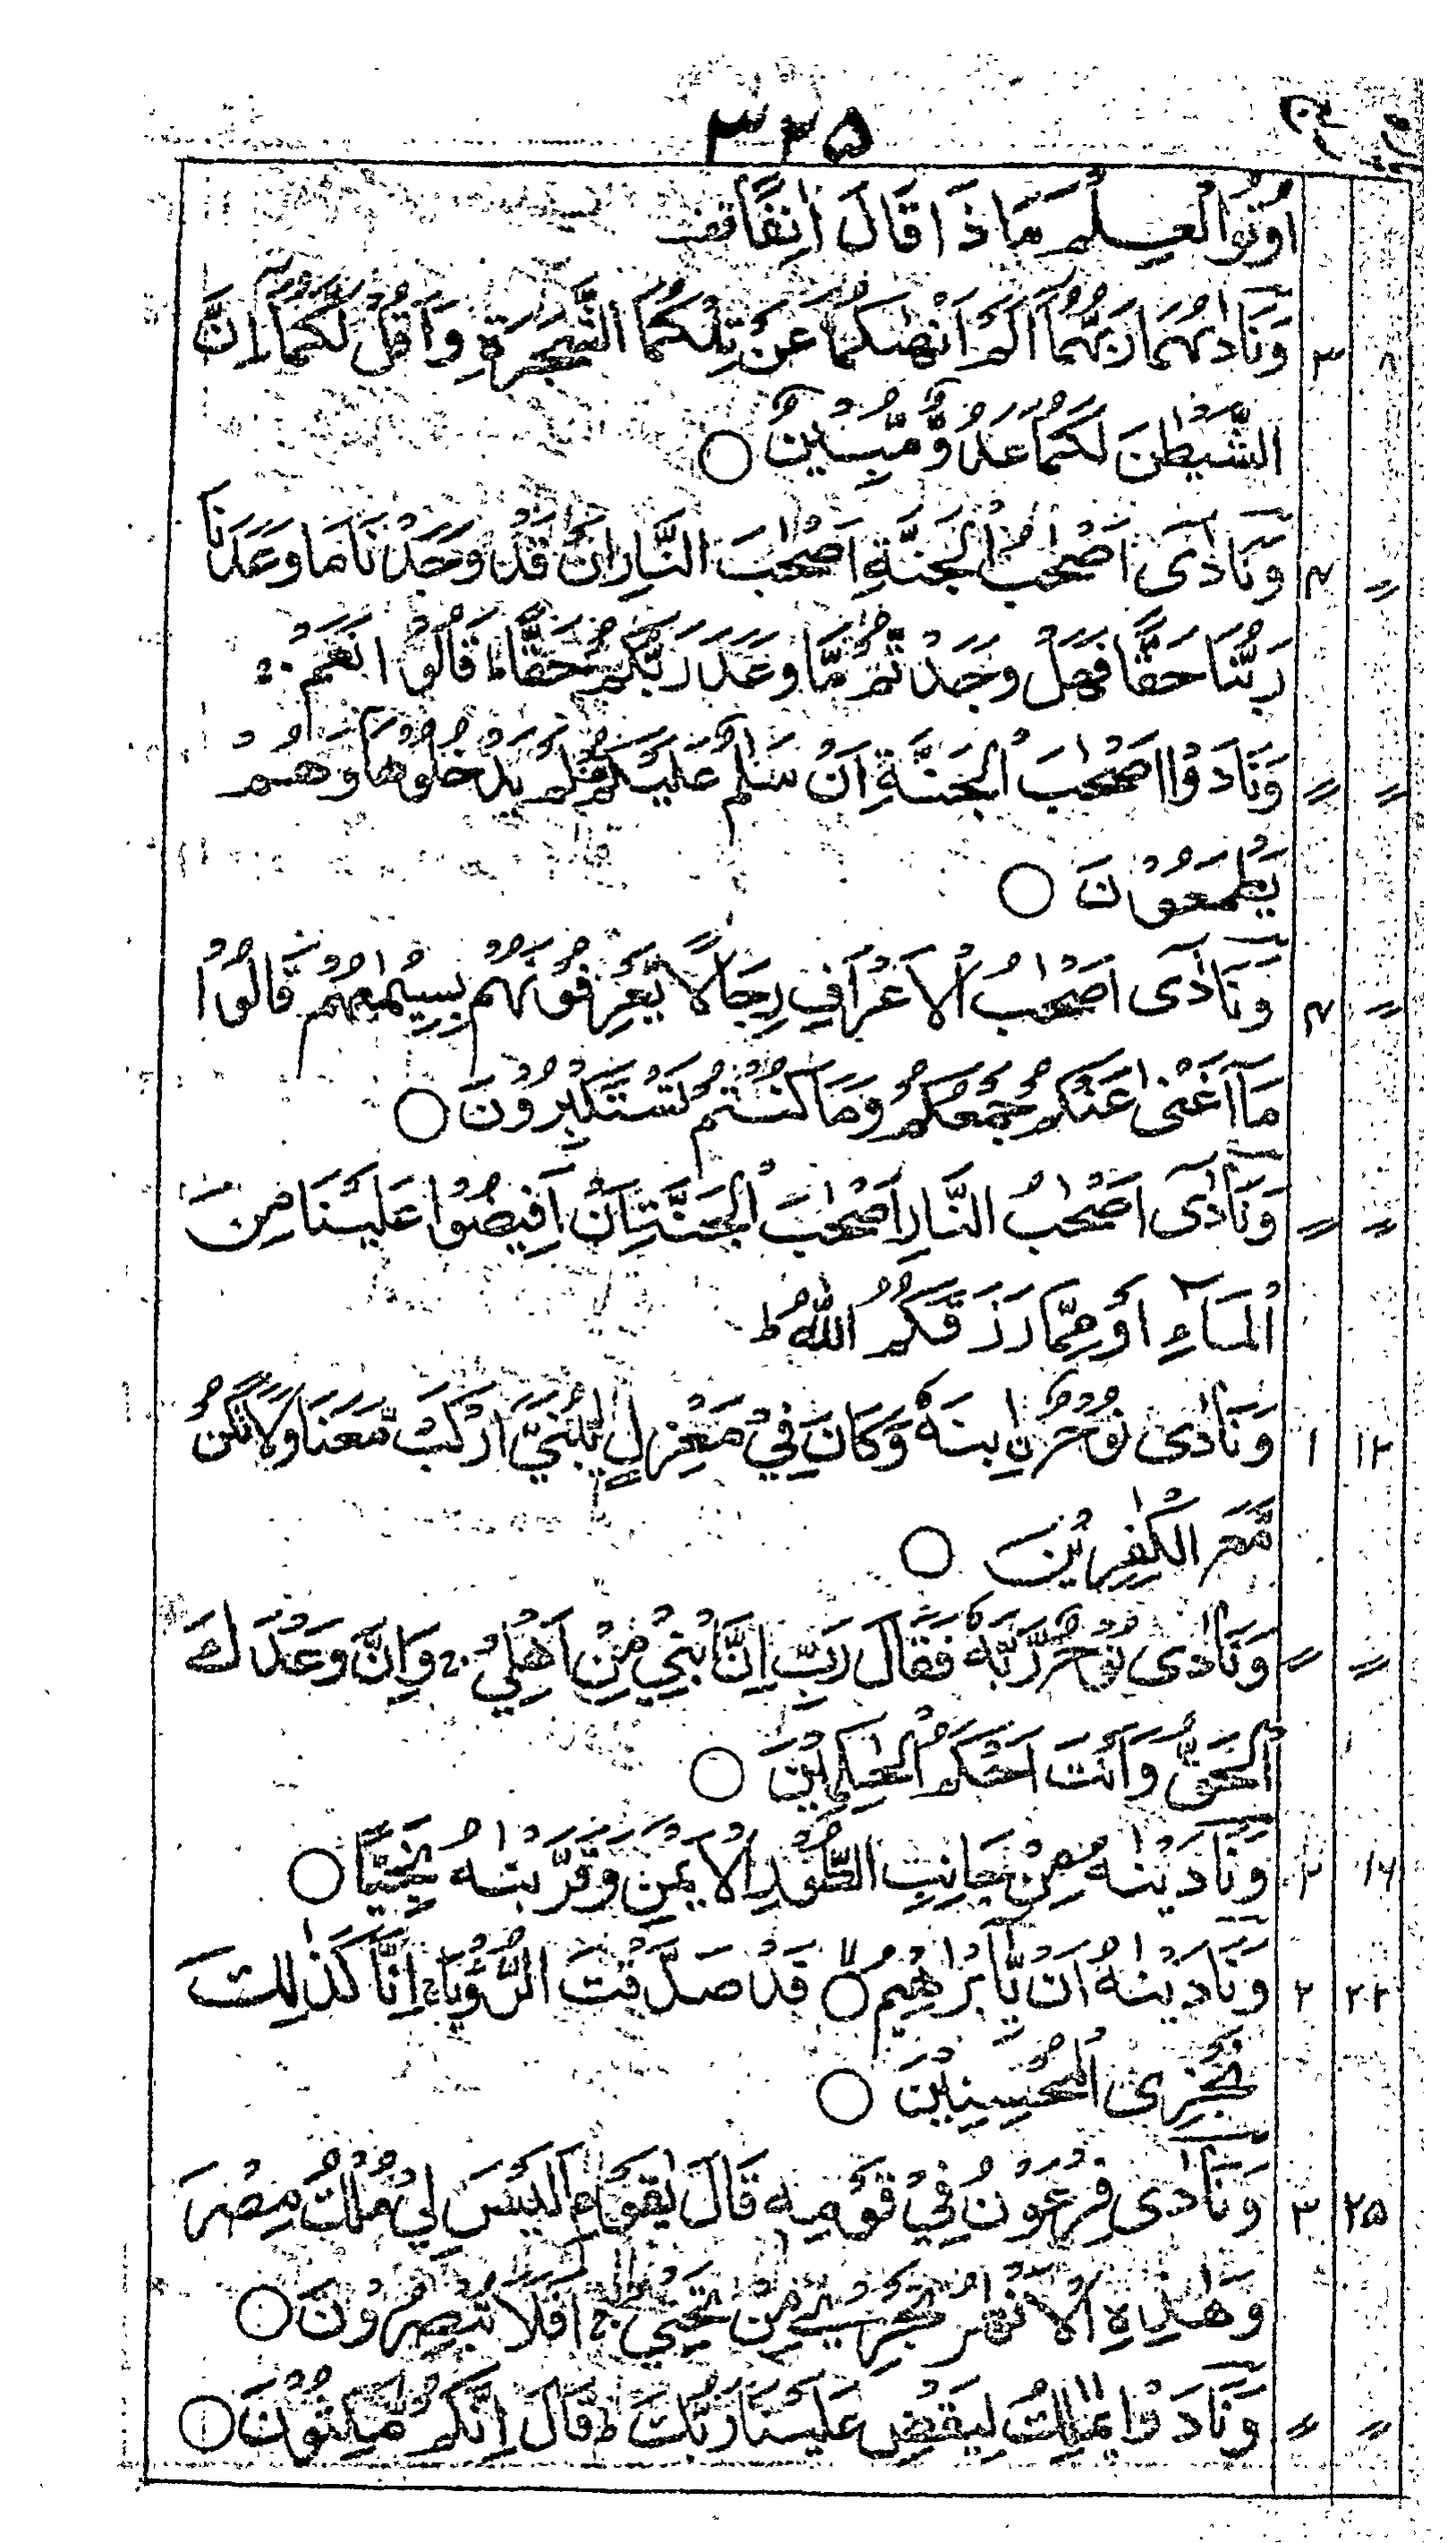 ۳۲۵
اُوْتُوا الْعِلْمَ مَاذَا قَالَ اٰنِفًا قف
۸ ۳ وَنَادٰىهُمَا رَبُّهُمَآ اَلَمْ اَنْهَكُمَا عَنْ تِلْكُمَا الشَّجَرَةِ وَاَقُلْ لَّكُمَآ اِنَّ
الشَّيْطٰنَ لَكُمَا عَدُوٌّ مُّبِيْنٌ ○
〃 ۴ وَنَادٰٓى اَصْحٰبُ الْجَنَّةِ اَصْحٰبَ النَّارِ اَنْ قَدْ وَجَدْنَا مَا وَعَدَنَا
رَبُّنَا حَقًّا فَهَلْ وَجَدْتُّمْ مَّا وَعَدَ رَبُّكُمْ حَقًّا ط قَالُوْا نَعَمْ ج
〃 〃 وَنَادَوْا اَصْحٰبَ الْجَنَّةِ اَنْ سَلٰمٌ عَلَيْكُمْ قف لَمْ يَدْخُلُوْهَا وَهُمْ
يَطْمَعُوْنَ ○
〃 ۴ وَنَادٰٓى اَصْحٰبُ الْاَعْرَافِ رِجَالًا يَّعْرِفُوْنَهُمْ بِسِيْمٰهُمْ قَالُوْا
مَآ اَغْنٰى عَنْكُمْ جَمْعُكُمْ وَمَا كُنْتُمْ تَسْتَكْبِرُوْنَ ○
〃 〃 وَنَادٰٓى اَصْحٰبُ النَّارِ اَصْحٰبَ الْجَنَّةِ اَنْ اَفِيْضُوْا عَلَيْنَا مِنَ
الْمَآءِ اَوْ مِمَّا رَزَقَكُمُ اللّٰهُ ط
۱۲ ۱ وَنَادٰى نُوْحُ نِ ابْنَهٗ وَكَانَ فِيْ مَعْزِلٍ يّٰبُنَيَّ ارْكَبْ مَّعَنَا وَلَا تَكُنْ
مَّعَ الْكٰفِرِيْنَ ○
〃 〃 وَنَادٰى نُوْحٌ رَّبَّهٗ فَقَالَ رَبِّ اِنَّ ابْنِيْ مِنْ اَهْلِيْ ج وَاِنَّ وَعْدَكَ
الْحَقُّ وَاَنْتَ اَحْكَمُ الْحٰكِمِيْنَ ○
۱۶ ۲ وَنَادَيْنٰهُ مِنْ جَانِبِ الطُّوْرِ الْاَيْمَنِ وَقَرَّبْنٰهُ نَجِيًّا ○
۲۳ ۲ وَنَادَيْنٰهُ اَنْ يّٰٓاِبْرٰهِيْمُ ○ لا قَدْ صَدَّقْتَ الرُّؤْيَا ج اِنَّا كَذٰلِكَ
نَجْزِى الْمُحْسِنِيْنَ ○
۲۵ ۳ وَنَادٰى فِرْعَوْنُ فِيْ قَوْمِهٖ قَالَ يٰقَوْمِ اَلَيْسَ لِيْ مُلْكُ مِصْرَ
وَهٰذِهِ الْاَنْهٰرُ تَجْرِيْ مِنْ تَحْتِيْ ج اَفَلَا تُبْصِرُوْنَ ○
〃 〃 وَنَادَوْا يٰمٰلِكُ لِيَقْضِ عَلَيْنَا رَبُّكَ ط قَالَ اِنَّكُمْ مّٰكِثُوْنَ ○